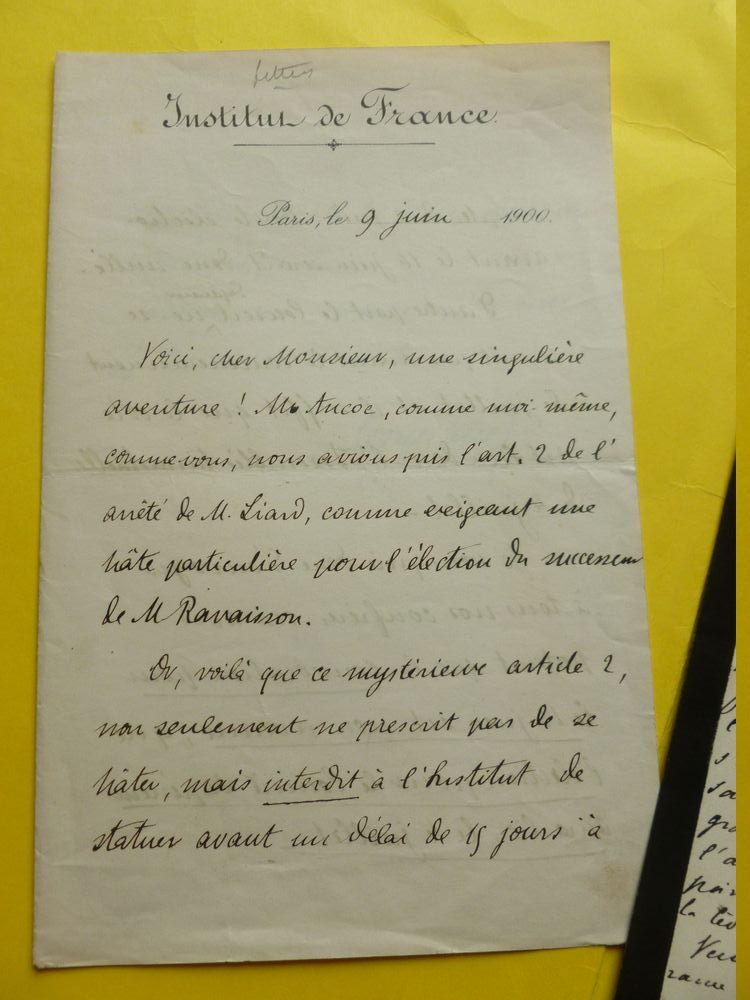 lettres
Institut de France.
Paris, le 9 juin 1900.
Voici, cher Monsieur, une singulière
aventure ! M. Aucoc, comme moi-même,
comme vous, nous avions pris l'art. 2 de l'
arrêté de M. Liard, comme exigeant une
hâte particulière pour l'élection du successeur
de M Ravaisson.
Or, voilà que ce mystérieux article 2,
non seulement ne prescrit pas de se
hâter, mais interdit à l'Institut de
statuer avant un délai de 15 jours "à